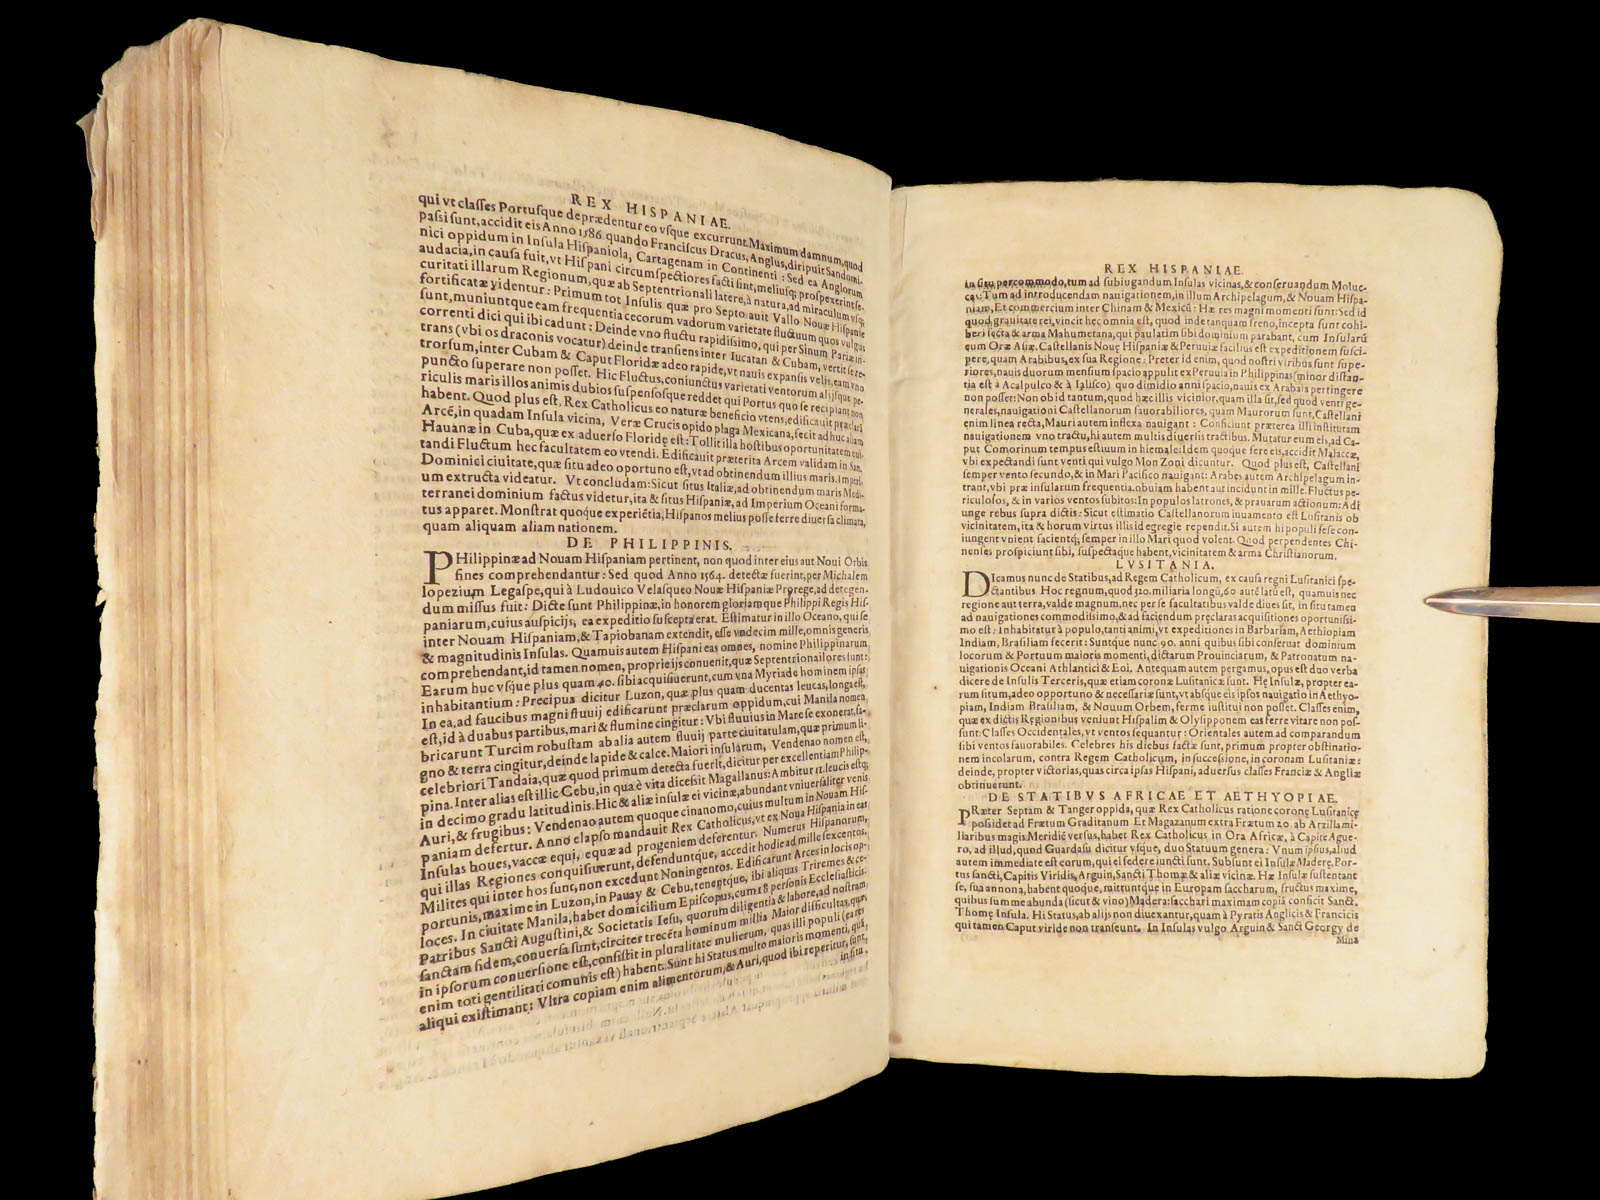 REX HISPANIAE.
qui vt classes Portusque deprædentur eo vsque excurrunt. Maximum damnum, quod
passi sunt, accidit eis Anno 1586 quando Franciscus Dracus, Anglus, diripuit Sandomi-
nici oppidum in Insula Hispaniola, Cartagenam in Continenti: Sed ea Anglorum
audacia, in causa fuit, vt Hispani circumspectiores facti sint, meliusq; prospexerint se-
curitati illarum Regionum, quæ ab Septentrionali latere, à natura, ad miraculum vsq;
fortificatæ videntur: Primum tot Insulis quæ pro Septo auit Vallo Nouæ Hispaniæ
sunt, muniuntque eam frequentia cecorum vadorum varietate fluctuum quos vulgus
correnti dici qui ibi cadunt: Deinde vno fluctu rapidissimo, qui per Sinum Pariæ in-
trans (vbi os draconis vocatur) deinde transiens inter Iucatan & Cubam, vertit se re-
trorsum, inter Cubam & Caput Floridæ adeo rapide, vt nauis expansis velis, eam vno
puncto superare non posset. Hic Fluctus, coniunctus varietati ventorum alijsque pe-
riculis maris illos animis dubios suspensosque reddet qui Portus quo se recipiant non
habent. Quod plus est, Rex Catholicus eo naturæ beneficio vtens, edificauit præclarã
Arcẽ, in quadam Insula vicina, Veræ Crucis opido plaga Mexicana, fecit ad huc aliam
Hauanæ in Cuba, quæ ex aduerso Floridę est: Tollit illa hostibus oportunitatem eui-
tandi Fluctum hec facultatem eo vtendi. Edificauit præterita Arcem validam in San.
Dominici ciuitate, quæ situ adeo oportuno est, vt ad obtinendum illius maris. Imperi,
um extructa videatur. Vt concludam: Sicut situs Italiæ, ad obtinendum maris Medi-
terranei dominium factus videtur, ita & situs Hispaniæ, ad Imperium Oceani forma-
tus apparet. Monstrat quoque experiẽtia, Hispanos melius posse ferre diuersa climata,
quam aliquam aliam nationem.
DE PHILIPPINIS.
PHilippinæ ad Nouam Hispaniam pertinent, non quod inter eius aut Noui Orbis
fines comprehendantur: Sed quod Anno 1564. detectæ fuerint, per Michalem
lopezium Legaspe, qui à Ludouico Velasqueo Nouæ Hispaniæ Prorege, ad detegen-
dum missus fuit: Dicte sunt Philippinæ, in honorem gloriamque Philippi Regis His-
paniarum, cuius auspicijs, ea expeditio suscepta erat. Estimatur in illo Oceano, qui se
inter Nouam Hispaniam, & Tapiobanam extendit, esse vndecim mille, omnis generis
& magnitudinis Insulas. Quamuis autem Hispani eas omnes, nomine Philippinarum
comprehendant, id tamen nomen, proprie ijs conuenit, quæ Septentrionaliores sunt:
Earum huc vsque plus quam 40. sibi acquisiuerunt, cum vna Myriade hominem ipsas
inhabitantium: Precipua dicitur Luzon, quæ plus quam ducentas leucas, longa est,
In ea, ad faucibus magni fluuij edificarunt præclarum oppidum, cui Manila nomen,
est, id à duabus partibus, mari & flumine cingitur: Vbi fluuius in Mare se exonerat, fa-
bricarunt Turcim robustam ab alia autem fluuij parte ciuitatulam, quæ primum li-
gno & terra cingitur, deinde lapide & calce. Maiori insularum, Vendenao nomen est,
celebriori Tandaia, quæ quod primum detecta fuerlt, dicitur per excellentiam Philip-
pina. Inter alias est illic Cebu, in qua è vita dicessit Magallanus: Ambitur 12. leucis estq;
in decimo gradu latitudinis. Hic & aliæ insulæ ei vicinæ, abundant vniuersaliter venis
Auri, & frugibus: Vendenao autem quoque cinanomo, cuius multum in Nouam His-
paniam defertur. Anno elapso mandauit Rex Catholicus, vt ex Noua Hispania in eas
Insulas boues, vaccæ equi, equæ ad progeniem deferentur. Numerus Hispanorum,
qui illas Regiones conquisiuerunt, defenduntque, accedit hodie ad mille sexcentos.
Milites qui inter hos sunt, non excedunt Noningentos. Edificarunt Arces in locis op-
portunis, maxime in Luzon, in Pauay & Cebu, tenentque, ibi aliquas Triremes & ce-
loces. In ciuitate Manila, habet domicilium Episcopus, cum 18 personis Ecclesiasticis.
Patribus Sancti Augustini, & Societatis Iesu, quorum diligentia & labore, ad nostram
sanctam fidem, conuersa sunt, circiter trecẽta hominum millia Maior difficultas, quæ,
in ipsorum conuersione est, consistit in pluralitate mulierum, quas illi populi (ea res
enim toti gentilitati comunis est) habent. Sunt hi Status multo maioris momenti, quã
aliqui existimant: Vltra copiam enim alimentorum, & Auri, quod ibi reperitur, sunt,
in situ
REX HISPANIAE.
in situ percommodo, tum ad subiugandum Insulas vicinas, & conseruandum Moluc-
cas: Tum ad introducendam nauigationem, in illum Archipelagum, & Nouam Hispa-
niam, Et commercium inter Chinam & Mexicũ: Hæ res magni momenti sunt: Sed id
quod grauitate rei, vincit hec omnia est, quod inde tanquam freno, incepta sunt cohi-
beri secta & arma Mahumetana, qui paulatim sibi dominium parabant, cum Insularũ
eum Oræ Asiæ. Castellanis Nouę Hispaniæ & Peruuiæ facilius est expeditionem susci-
pere, quam Arabibus, ex sua Regione: Preter id enim, quod nostri viribus sunt supe-
riores, nauis duorum mensium spacio appulit ex Peruuia in Philippinas (minor distan-
tia est à Acalpulco & à Ialisco) quo dimidio anni spacio, nauis ex Arabaia pertingere
non posset: Non ob id tantum, quod hæc illis vicinior, quam illa sit, sed quod venti ge-
nerales, nauigationi Castellanorum fauorabiliores, quam Maurorum sunt, Castellani
enim linea recta, Mauri autem inflexa nauigant: Conficiunt præterea illi institutam
nauigationem vno tractu, hi autem multis diuersis tractibus. Mutatur eum eis, ad Ca-
put Comorinum tempus estiuum in hiemale: Idem quoque fere eis, accidit Malaccæ,
vbi expectandi sunt venti qui vulgo Mon Zoni dicuntur. Quod plus est, Castellani
semper vento secundo, & in Mari Pacifico nauigant: Arabes autem Archipelagum in-
trant, vbi præ insularum frequentia. obuiam habent aut incidunt in mille. Fluctus pe-
riculosos, & in varios ventos subitos: In populos latrones, & prauarum actionum: Adi
unge rebus supra dictis: Sicut estimatio Castellanorum iuuamento est Lusitanis ob
vicinitatem, ita & horum virtus illis id egregie rependit. Si autem hi populi se se con-
iungent vnient facientq; semper in illo Mari quod volent. Quod perpendentes Chi-
nenses prospiciunt sibi, suspectaque habent, vicinitatem & arma Christianorum.
LVSITANIA.
DIcamus nunc de Statibus, ad Regem Catholicum, ex causa regni Lusitanici spe-
ctantibus Hoc regnum, quod 320. miliaria longũ, 60 autẽ latũ est, quamuis nec
regione aut terra, valde magnum, nec per se facultatibus valde diues sit, in situ tamen
ad nauigationes commodissimo, & ad faciendum preclaras acquisitiones oportunissi-
mo est: Inhabitatur à populo, tanti animi, vt expeditiones in Barbariam, Aethiopiam
Indiam, Brasiliam fecerit: Suntque nunc 90. anni quibus sibi conseruat dominium
locorum & Portuum maioris momenti, dictarum Prouinciarum, & Patronatum na-
uigationis Oceani Athlantici & Eoi. Antequam autem pergamus, opus est duo verba
dicere de Insulis Terceris, quæ etiam coronæ Lusitanicæ sunt. Hę Insulæ, propter ea-
rum situm, adeo opportuno & necessariæ sunt, vt absque eis ipsos nauigatio in Aethyo-
piam, Indiam Brasiliam, & Nouum Orbem, ferme iustitui non posset. Classes enim,
quæ ex dictis Regionibus veniunt Hispalim & Olysipponem eas ferre vitare non pos-
sunt: Classes Occidentales, vt ventos sequantur: Orientales autem ad comparandum
sibi ventos fauorabiles. Celebres his diebus factæ sunt, primum propter obstinatio-
nem incolarum, contra Regem Catholicum, in successione, in coronam Lusitaniæ:
deinde, propter victorias, quas circa ipsas Hispani, aduersus classes Franciæ & Angliæ
obtinuerunt.
DE STATIBVS AFRICAE ET AETHYOPIAE.
PRæter Septam & Tanger oppida, quæ Rex Catholicus ratione coronę Lusitanicę
possidet ad Frætum Graditanum Et Magazanum extra Frætum 20. ab Arzilla mi-
liaribus magis Meridiẽ versus, habet Rex Catholicus in Ora Africæ, à Capite Ague-
ro, ad illud, quod Guardafu dicitur vsque, duo Statuum genera: Vnum ipsius, aliud
autem immediate est eorum, qui ei federe iuncti sunt. Subsunt ei Insulæ Maderę, Por-
tus sancti, Capitis Viridis, Arguin, Sancti Thomæ & aliæ vicinæ. Hæ Insulæ sustentant
se, sua annona, habent quoque, mittuntque in Europam saccharum, fructus maxime,
quibus summe abunda (sicut & vino) Madera: sacchari maximam copiã conficit Sanct.
Thomę Insula. Hi Status, ab alijs non diuexantur, quam à Pyratis Anglicis & Francicis
qui tamen Caput viride non transeunt. In Insulas vulgo Arguin & Sanct Georgy de
Mina